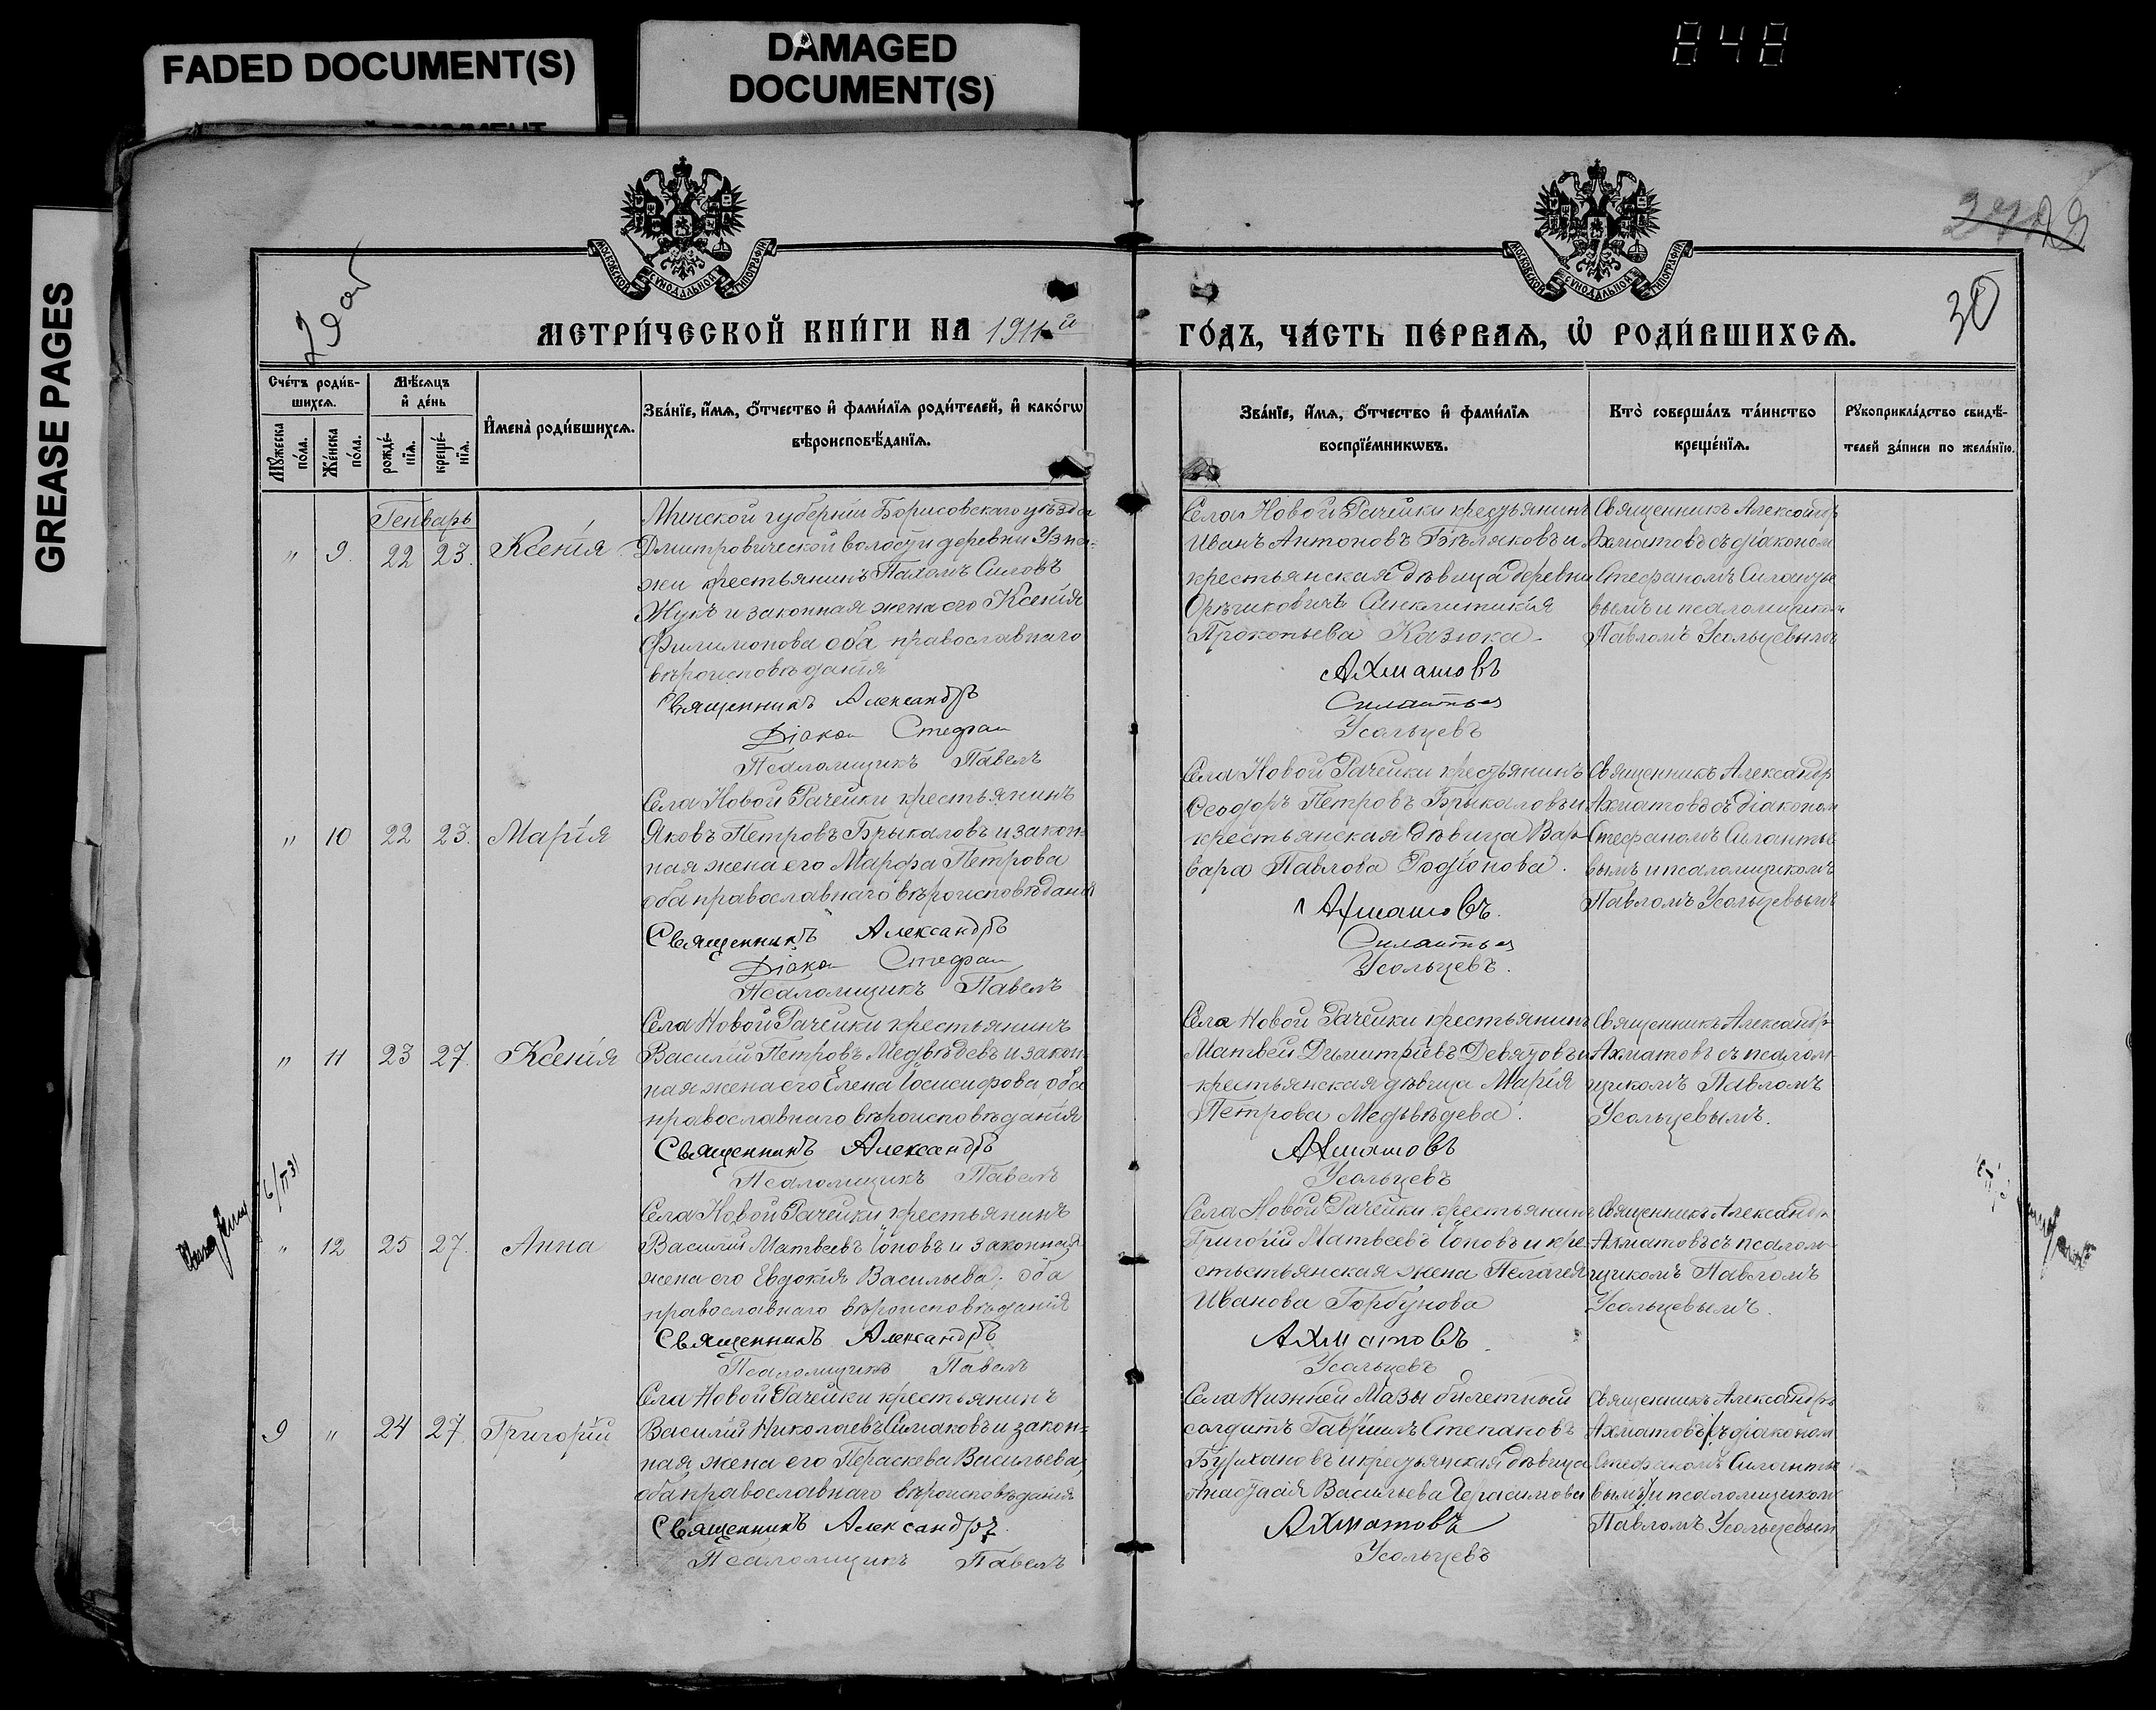 848
FADED DOCUMENT(S)
DAMAGED
DOCUMENT(S)
GREASE PAGES
МОСКОВСКОЙ СѴНОДАЛЬНОЙ ТИПОГРАФІИ
МОСКОВСКОЙ СѴНОДАЛЬНОЙ ТИПОГРАФІИ
30
МЕТРИ́ЧЕСКОЙ КНИ́ГИ НА 1911й
ГО́ДЪ, ЧА́СТЬ ПЕ́РВАѦ, Ѡ҆ РОДИ́ВШИХСѦ.
Сче́тъ роди́в-
шихсѧ.
Мꙋ́жеска по́ла.
Же́нска по́ла.
Мѣ́сѧцъ
и҆ де́нь
рожде́-нїѧ.
креще́-нїѧ.
И҆мена̀ роди́вшихсѧ.
Зва́нїе, и҆́мѧ, ѻ҆́тчество и҆ фами́лїѧ роди́телей, и҆ како́гѡ
вѣроисповѣ́данїѧ.
Зва́нїе, и҆́мѧ, ѻ҆́тчество и҆ фами́лїѧ
воспрїе́мникѡвъ.
Кто̀ соверша́лъ та́инство
креще́нїѧ.
Рꙋкоприкла́дство свидѣ́-
телей за́писи по жела́нїю.
Генварь
" 9. 22 23. Ксенія
Минской губерніи Борисовскаго уѣзда
Дмитровической волости деревни
жи крестьянинъ Пахомъ Силовъ
Жукъ и законная жена его Ксенія
Филимонова оба православнаго
вѣроисповѣданія
Священникъ Александръ
Діакон Стефан
Псаломщикъ Павелъ
Села Новой Рачейки крестьянинъ
Иванъ Антоновъ Бѣляковъ и
крестьянская дѣвица деревни
Синклитикія
Прокопьева Казюка.
Ахматовъ
Силантьев
Усольцевъ
Священникъ Александръ
Ахматовъ съ діакономъ
Стефаномъ Силантье
вымъ и псаломщиком
Павломъ Усольцевымъ
" 10 22 23. Марія
Села Новой Рачейки крестьянинъ
Яковъ Петровъ Брыкаловъ и закон-
ная жена его Марфа Петрова
оба православнаго вѣроисповѣданія
Священникъ Александръ
Діакон Стефан
Псаломщикъ Павелъ
Села Новой Рачейки крестьянинъ
Ѳеодоръ Петровъ Брыкаловъ и
крестьянская дѣвица Вар-
вара Павлова Родіонова.
Ахматовъ.
Силантьев
Усольцевъ.
Священникъ Александр
Ахматовъ съ діаконом
Стефаномъ Силантье
вымъ и псаломщикомъ
Павломъ Усольцевымъ
" 11 23 27. Ксенія
Села Новой Рачейки крестьянинъ
Василій Петровъ Медвѣдевъ и закон-
ная жена его Елена Іосифова, оба
православнаго вѣроисповѣданія
Священникъ Александръ
Псаломщикъ Павелъ
Села Новой Рачейки крестьянинъ
Матвей Димитріевъ Девятовъ и
крестьянская дѣвица Марія
Петрова Медвѣдева.
Ахматовъ
Усольцевъ
Священникъ Александръ
Ахматовъ съ псалом-
щикомъ Павломъ
Усольцевымъ.
" 12 25 27. Анна
Села Новой Рачейки крестьянинъ
Василій Матвеевъ Іоновъ и законная
жена его Евдокія Васильева, оба
православнаго вѣроисповѣданія
Священникъ Александръ
Псаломщикъ Павелъ
Села Новой Рачейки крестьянинъ
Григорій Матвеевъ Іоновъ и кре-
стьстьянская жена Пелагея
Иванова Горбунова
Ахматовъ
Усольцевъ
Священникъ Александръ
Ахматовъ съ псалом-
щикомъ Павломъ
Усольцевымъ.
9 " 24 27. Григорій
Села Новой Рачейки крестьянинъ
Василій Николаевъ Симаковъ и закон-
ная жена его Параскева Васильева,
оба православнаго вѣроисповѣданія
Священникъ Александръ
Псаломщикъ Павелъ
Села Нижней Мазы билетный
солдатъ Гавріилъ Степановъ
и крестьянская дѣвица
Анастасія Васильева Герасимова
Ахматовъ
Усольцевъ
Священникъ Александръ
Ахматовъ съ діаконом
Стефаномъ Силантье
вымъ и псаломщиком
Павломъ Усольцевым